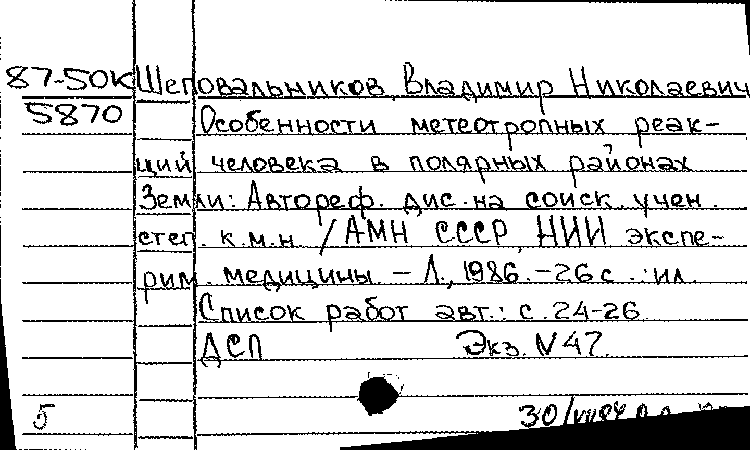 87-50К Шеповальников, Владимир Николаевич
5870 Особенности метеотропных реак-
ций человека в полярных районах
Земли: Автореф. дис. на соиск. учен.
степ. к.м.н. / АМН СССР, НИИ экспе-
рим. медицины. – Л., 1986. – 26 с. : ил.
Список работ авт.: с. 24-26
ДСП Экз. N 47.
5 30/